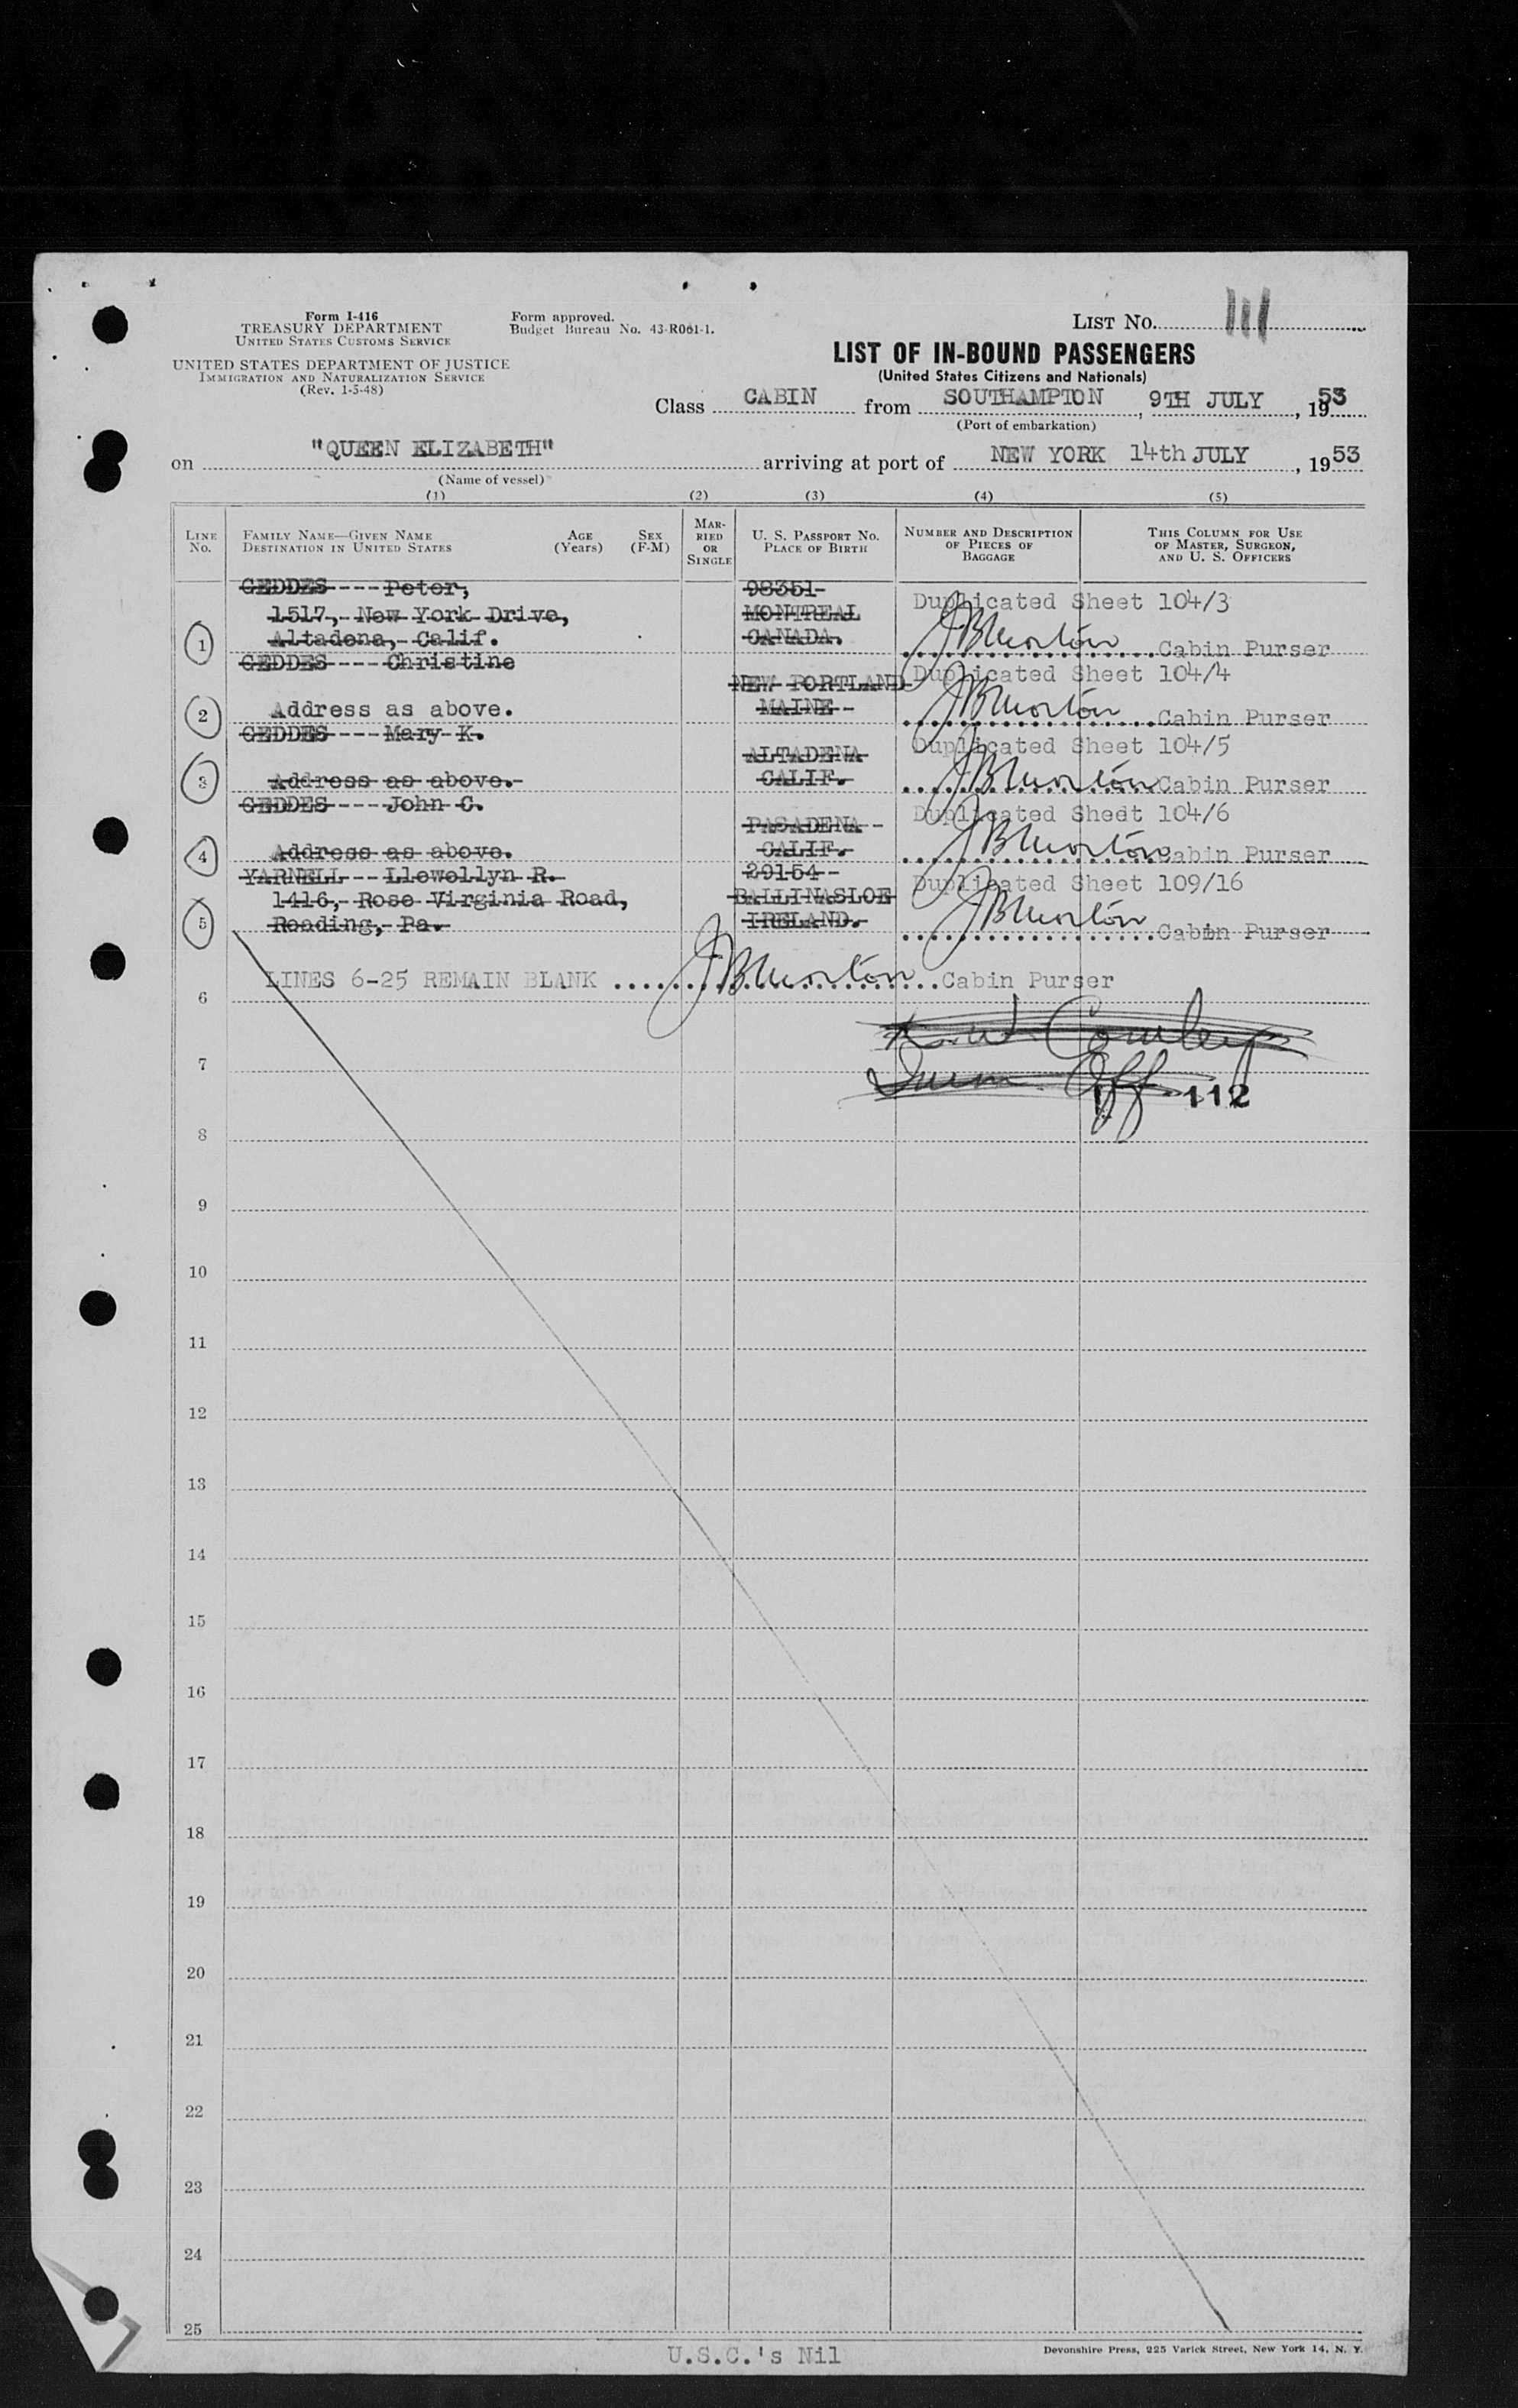 Form I-416
TREASURY DEPARTMENT
UNITED STATES CUSTOMS SERVICE
UNITED STATES DEPARTMENT OF JUSTICE
IMMIGRATION AND NATURALIZATION SERVICE
(Rev. 1-5-48)
Form approved.
Budget Bureau No. 43-R061-1.
LIST NO. 111
LIST OF IN-BOUND PASSENGERS
(United States Citizens and Nationals)
Class CABIN from SOUTHAMPTON, 9TH JULY, 1953
(Port of embarkation)
on "QUEEN ELIZABETH" arriving at port of NEW YORK 14th JULY, 1953
(Name of vessel)
(1) (2) (3) (4) (5)
LINE No.
FAMILY NAME—GIVEN NAME
DESTINATION IN UNITED STATES
AGE (Years)
SEX (F-M)
MARRIED OR SINGLE
U. S. PASSPORT NO.
PLACE OF BIRTH
NUMBER AND DESCRIPTION OF PIECES OF BAGGAGE
THIS COLUMN FOR USE OF MASTER, SURGEON, AND U. S. OFFICERS
GEDDES---Peter, 98351
1517, New York Drive, MONTREAL Duplicated Sheet 104/3
1 Altadena, Calif. CANADA. JBMorton Cabin Purser
GEDDES----Christine
NEW PORTLAND Duplicated Sheet 104/4
2 Address as above. MAINE JBMorton Cabin Purser
GEDDES----Mary K.
ALTADENA Duplicated Sheet 104/5
3 Address as above. CALIF. JBMorton Cabin Purser
GEDDES----John C.
PASADENA Duplicated Sheet 104/6
4 Address as above. CALIF. JBMorton Cabin Purser
YARNELL---Llewellyn R. 29154 Duplicated Sheet 109/16
1416, Rose Virginia Road, BALLINASLOE
5 Reading, Pa. IRELAND. JBMorton Cabin Purser
6 LINES 6-25 REMAIN BLANK JBMorton Cabin Purser
7
112
8
9
10
11
12
13
14
15
16
17
18
19
20
21
22
23
24
25
U.S.C.'s Nil
Devonshire Press, 225 Varick Street, New York 14, N. Y.